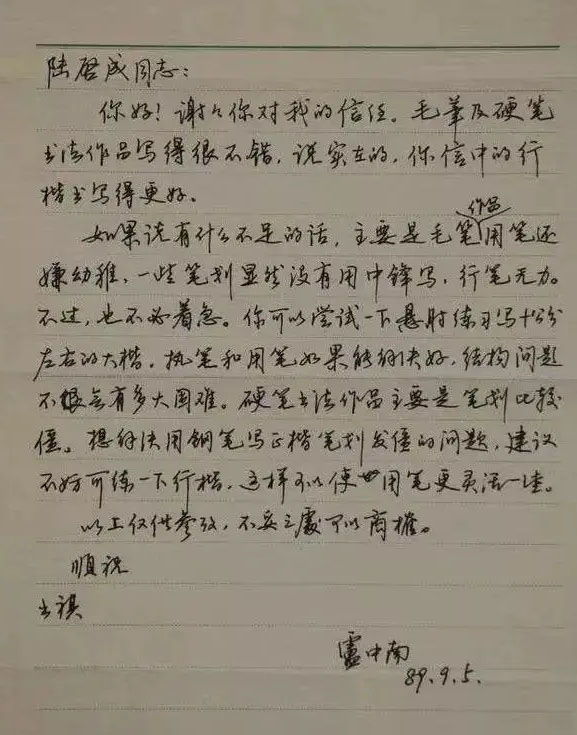 陆启成同志：
你好！谢谢你对我的信任。毛筆及硬笔
书法作品写得很不错，说实在的，你信中的行
楷书写得更好。
作品
如果说有什么不足的话，主要是毛笔用笔还
嫌幼稚，一些笔划显然没有用中锋写，行笔无力。
不过，也不必着急。你可以尝试一下悬肘练习写十公分
左右的大楷。执笔和用笔如果能解决好，结构问题
不会有多大困难。硬笔书法作品主要是笔划比较
僵。想解决用钢笔写正楷笔划发僵的问题，建议
不妨可练一下行楷，这样可以使用笔更灵活一些。
以上仅供参考，不妥之處可以商榷。
順祝
书祺
盧中南
89.9.5.